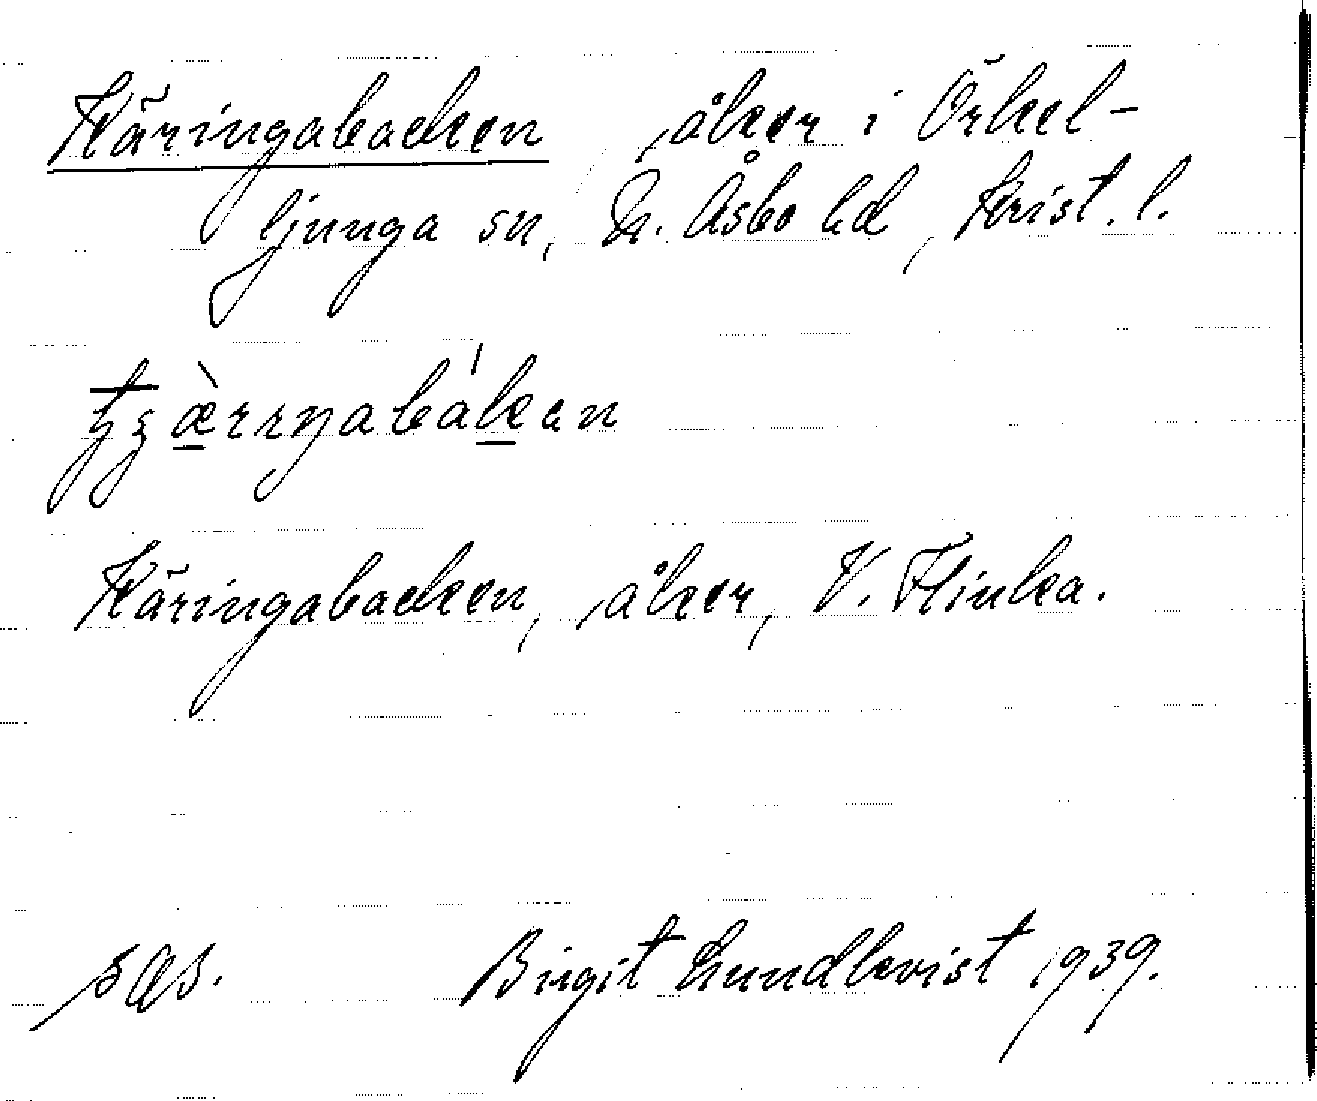 Käringabacken, åker i Örkel-
ljunga sn, N. Åsbo hd, Krist. l.
Käringabacken, åker, V. Flinka.
sgs. Birgit Lundkvist 1939.